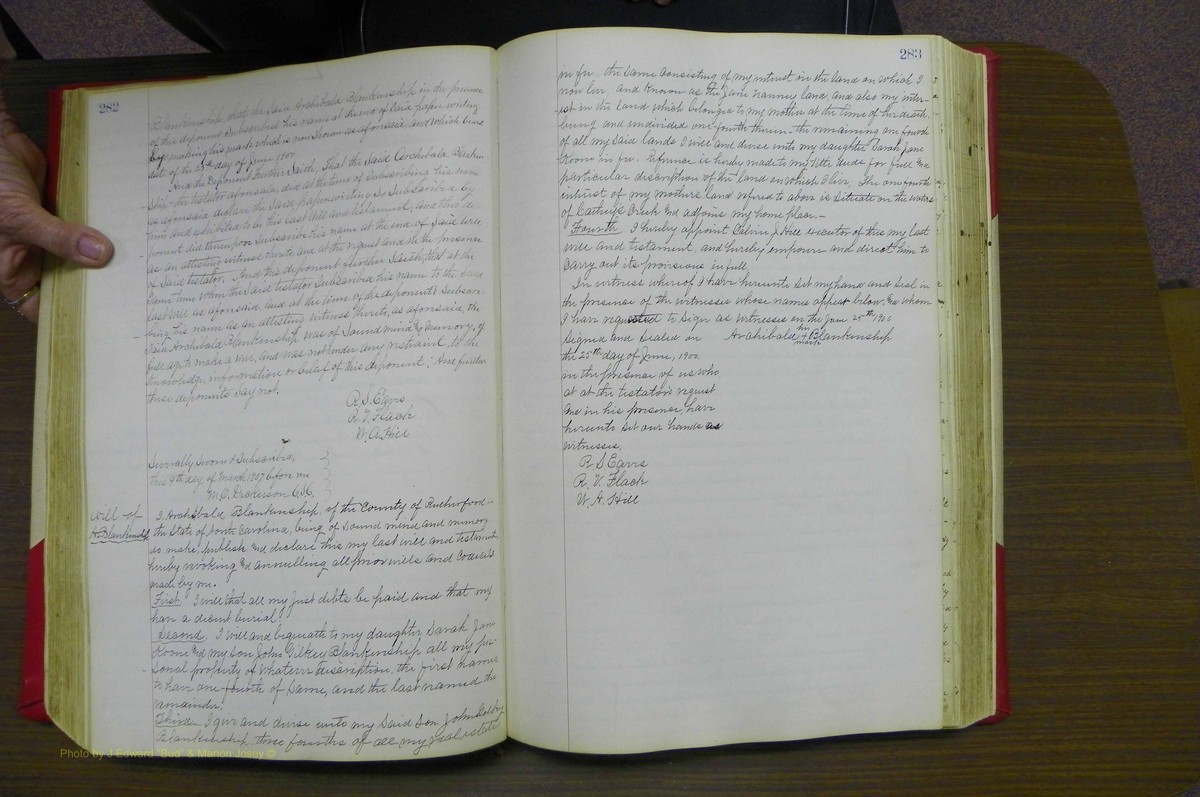 282
Blankenship that the said Archibald Blankenship in the presence
of this deponent subscribed his name at the end of said paper writing
by making his mark which is now shown as aforesaid, and which bears
date of the 25 day of June 1900.
And the Deponent Further Saith, That the Said Archibald Blanken-
ship the testator aforesaid, did at the time of subscribing his name
as aforesaid declare the said paper writing so subscribed by
him and exhibited to be his last Will and testament, and this de-
ponent did thereupon subscribe his name at the end of said Will
as an attesting witness thereto and at the request and in the presence
of said testator. And this deponent further saith, that at the
same time when the said testator subscribed his name to the said
last Will as aforesaid, and at the time of the deponent's subscri-
bing his name as an attesting witness thereto, as aforesaid, the
said Archibald Blankenship was of sound mind & memory, of
full age to make a will, and was not under any restraint to the
knowledge, information or belief of this deponent; And further
these deponents say not.
R. S. Eaves
R. V. Flack
W. A. Hill
Severally Sworn & Subscribed,
this 9th day of March 1907 before me
M. O. Dickerson C.S.C.
Will of
A. Blankenship
I Archibald Blankenship, of the County of Rutherford
the State of North Carolina, being of sound mind and memory
do make, publish and declare this my last will and testament
hereby revoking and annulling all prior wills and Codicils
made by me.
First. I will that all my just debts be paid and that my
have a decent burial.
Second. I will and bequeath to my daughter Sarah Jane
Koone and my son John Gilkey Blankenship all my per-
sonal property of whatever description, the first named
to have one-fourth of same, and the last named the
remainder.
Third. I give and devise unto my said son John Gilkey
Blankenship, three fourths of all my real estate
283
in fee. the same consisting of my interest in the land on which I
now live, and known as the Jane Nanney land, and also my inter-
est in the land which belonged to my mother at the time of her death.
being and undivided one-fourth therein - the remaining one fourth
of all my said lands I will and devise unto my daughter Sarah Jane
Koone in fee. Reference is hereby made to my title deeds for full and
particular description of the land on which I live. The one fourth
interest of my mothers land referred to above is situate on the waters
of Creek and adjoins my home place.
Fourth. I hereby appoint Calvin J. Hill executor of this my last
will and testament, and hereby empower and direct him to
carry out its provisions in full.
In witness whereof I have hereunto set my hand and seal in
the presence of the witnesses whose names appear below, and whom
I have requested to sign as witnesses on the June 25th 1900
Signed and sealed on Archibald his + mark Blankenship
the 25th day of June, 1900.
in the presence of us who
at at the testator's request
and in his presence, have
hereunto set our hands as
witnesses.
R S Eaves
R. V. Flack
W. A. Hill
Photo by J Edward "Bud" & Marion Josey ©